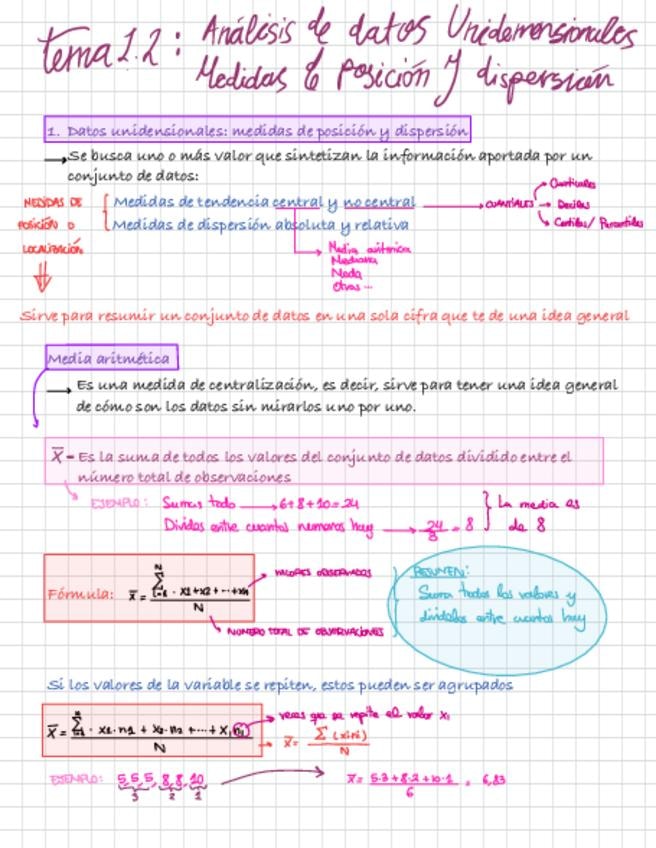 Tema 1.2: Análisis de datos Unidemensionales
Medidas de Posición y dispersión
1. Datos unidensionales: medidas de posición y dispersión
→ Se busca uno o más valor que sintetizan la información aportada por un
conjunto de datos:
MEDIDAS DE
POSICIÓN O
LOCALIZACIÓN
Medidas de tendencia central y no central → CUANTIALES
Medidas de dispersión absoluta y relativa
→ Deciles
→ Centiles/Percentiles
Media aritmética
Mediana
Moda
Otras...
Sirve para resumir un conjunto de datos en una sola cifra que te de una idea general
Media aritmética
→ Es una medida de centralización, es decir, sirve para tener una idea general
de cómo son los datos sin mirarlos uno por uno.
X̄ - Es la suma de todos los valores del conjunto de datos dividido entre el
número total de observaciones
EJEMPLO: Sumas todo → 6+8+10=24
Divides entre cuantos numeros hay → 24/3 = 8
La media es
de 8
Fórmula: x̄ = ∑ · x1+x2+...+xn / N
VALORES OBSERVADOS
NUMERO TOTAL DE OBSERVACIONES
RESUMEN:
Suma todos los valores y
dividelos entre cuantos hay
Si los valores de la variable se repiten, estos pueden ser agrupados
x̄ = ∑ · x1·n1 + x2·n2 + ... + xi·ni / N
veces que se repite el valor xi
→ x̄ = ∑(xi·ni) / N
EJEMPLO: 5,5,5, 8,8, 10
3 2 1
x̄ = 5·3+8·2+10·1 / 6 = 6,83